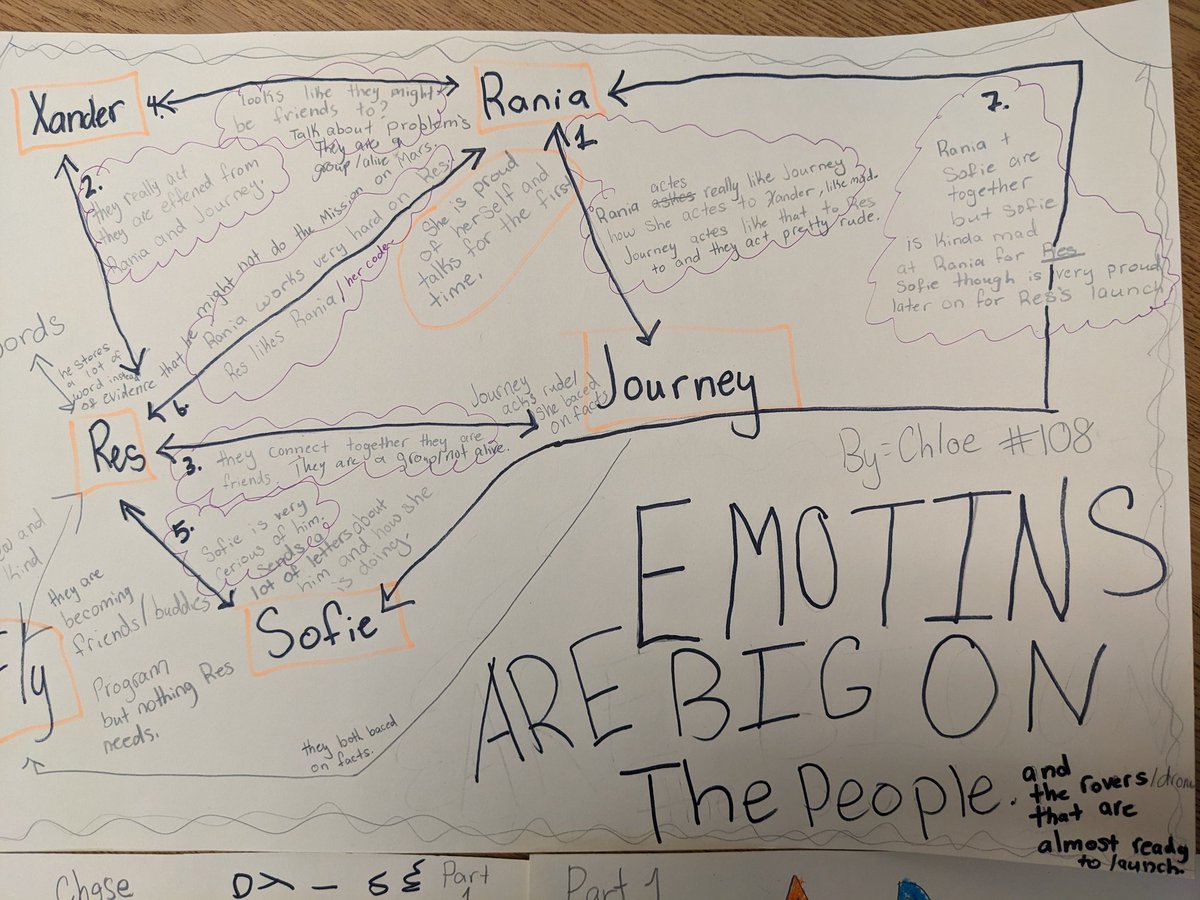 Xander
4.
looks like they might
be friends to?
Talk about problem's
They are a
group/alive Mars.
Rania
2.
they really act
they are effened from
Rania and Journey.
1
Rania actes really like Journey
how She actes to Xander, like mad.
Journey actes like that to Res
to and they act pretty rude.
7.
Rania +
Sofie are
together
but Sofie
is Kinda mad
at Rania for Res
Sofie though is very proud
later on for Res's launch
She is proud
of herself and
talks for the first
time.
he stores
a lot of
word instead
of evidence that he might not do the Mission on
Rania works very hard on Res.
Res likes Rania/her code.
6.
ords
Res
3.
they connect together they are
friends. They are a group/not alive.
Journey
acts rude!
She baced
on facts
Journey
By=Chloe #108
5.
Sofie is very
cerious of him.
sends a
lot of letters about
him and how she
is doing.
Sofie
and
Kind
they are
becoming
friends/buddies
Program
but nothing Res
needs.
Fly
they both baced
on facts.
EMOTINS
ARE BIG ON
The People.
and
the rovers/dron
that are
almost ready
to launch.
Chase
Part
1
Part 1